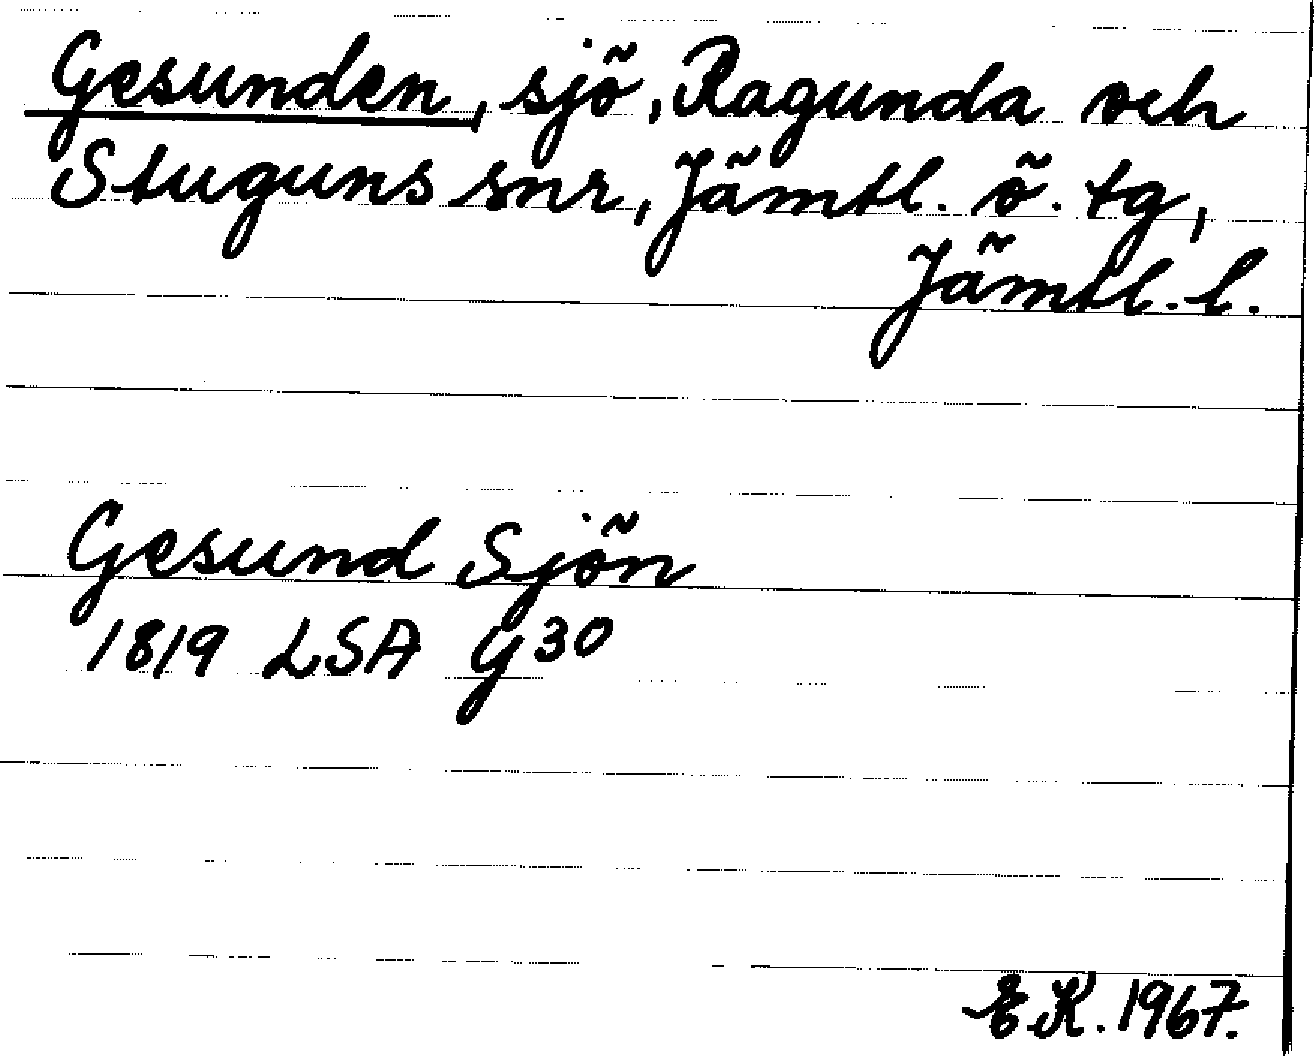 Gesunden, sjö, Ragunda och
Stuguns snr, Jämtl. ö. tg,
Jämtl. l.
Gesund Sjön
1819 LSA G 30
E.K. 1967.